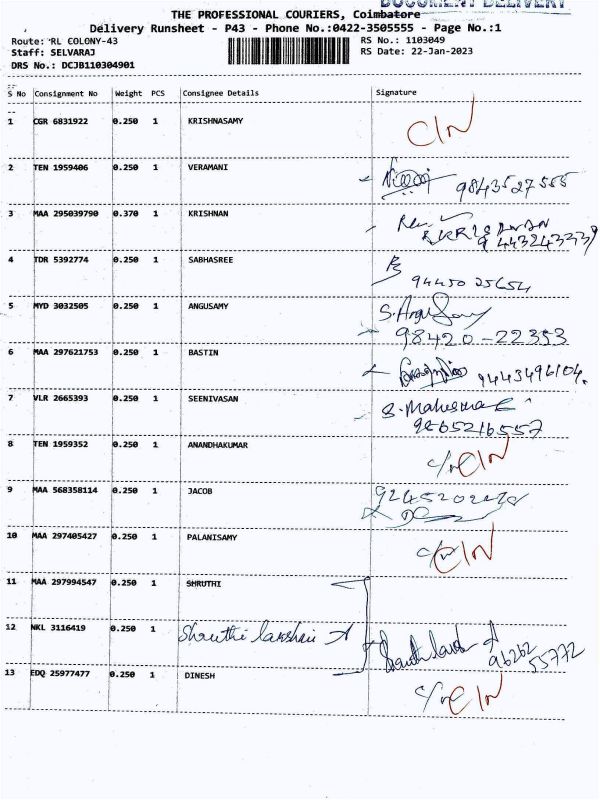 DOCUMENT DELIVERY
THE PROFESSIONAL COURIERS, Coimbatore
Delivery Runsheet - P43 - Phone No.:0422-3505555 - Page No.:1
Route: RL COLONY-43 RS No.: 1103049
Staff: SELVARAJ RS Date: 22-Jan-2023
DRS No.: DCJB110304901
S No Consignment No Weight PCS Consignee Details Signature
1 CGR 6831922 0.250 1 KRISHNASAMY CIN
2 TEN 1959406 0.250 1 VERAMANI 9843527555
3 MAA 295039790 0.370 1 KRISHNAN
9443243339
4 TDR 5392774 0.250 1 SABHASREE
94450 25654
5 MYD 3032505 0.250 1 ANGUSAMY S. Angusamy
98420-22353
6 MAA 297621753 0.250 1 BASTIN 9443496104.
7 VLR 2665393 0.250 1 SEENIVASAN
9865216557
8 TEN 1959352 0.250 1 ANANDHAKUMAR CIN
9 MAA 568358114 0.250 1 JACOB
10 MAA 297405427 0.250 1 PALANISAMY CIN
11 MAA 297994547 0.250 1 SHRUTHI
12 NKL 3116419 0.250 1 Shruthi lakshmi A
96262
55772
13 EDQ 25977477 0.250 1 DINESH CIN